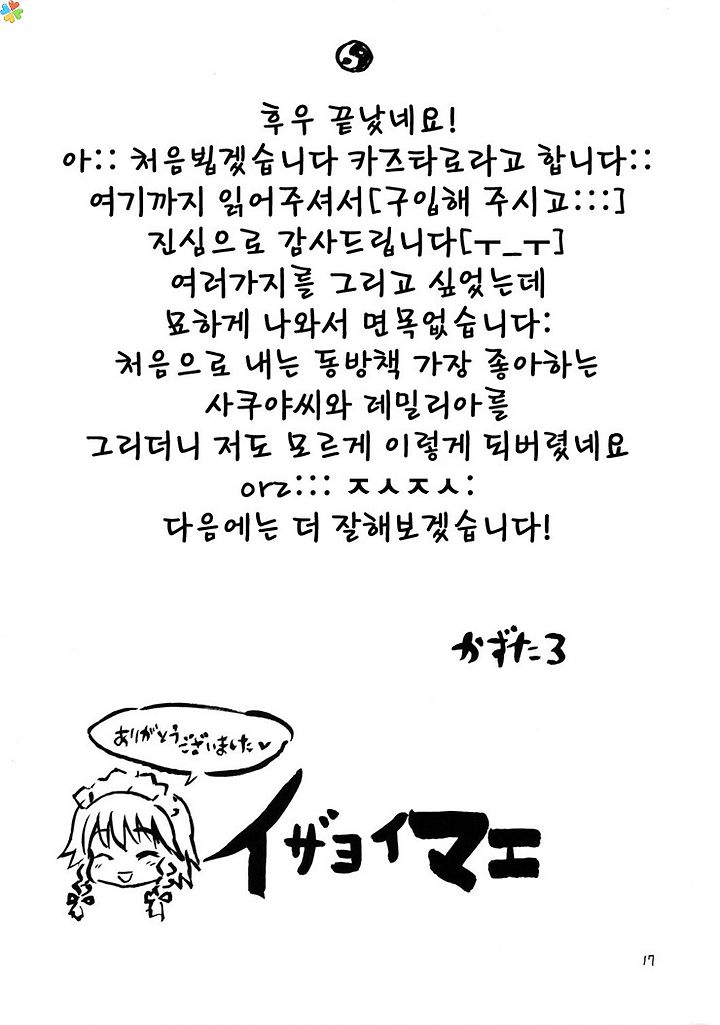 후우 끝났네요!
아:: 처음뵙겠습니다 카즈타로라고 합니다::
여기까지 읽어주셔서[구입해 주시고:::]
진심으로 감사드립니다[ㅜ_ㅜ]
여러가지를 그리고 싶었는데
묘하게 나와서 면목없습니다:
처음으로 내는 동방책 가장 좋아하는
사쿠야씨와 레밀리아를
그리더니 저도 모르게 이렇게 되버렸네요
orz::: ㅈㅅㅈㅅ:
다음에는 더 잘해보겠습니다!
かずたろ
ありがとう
ございました♥
イザヨイマエ
17